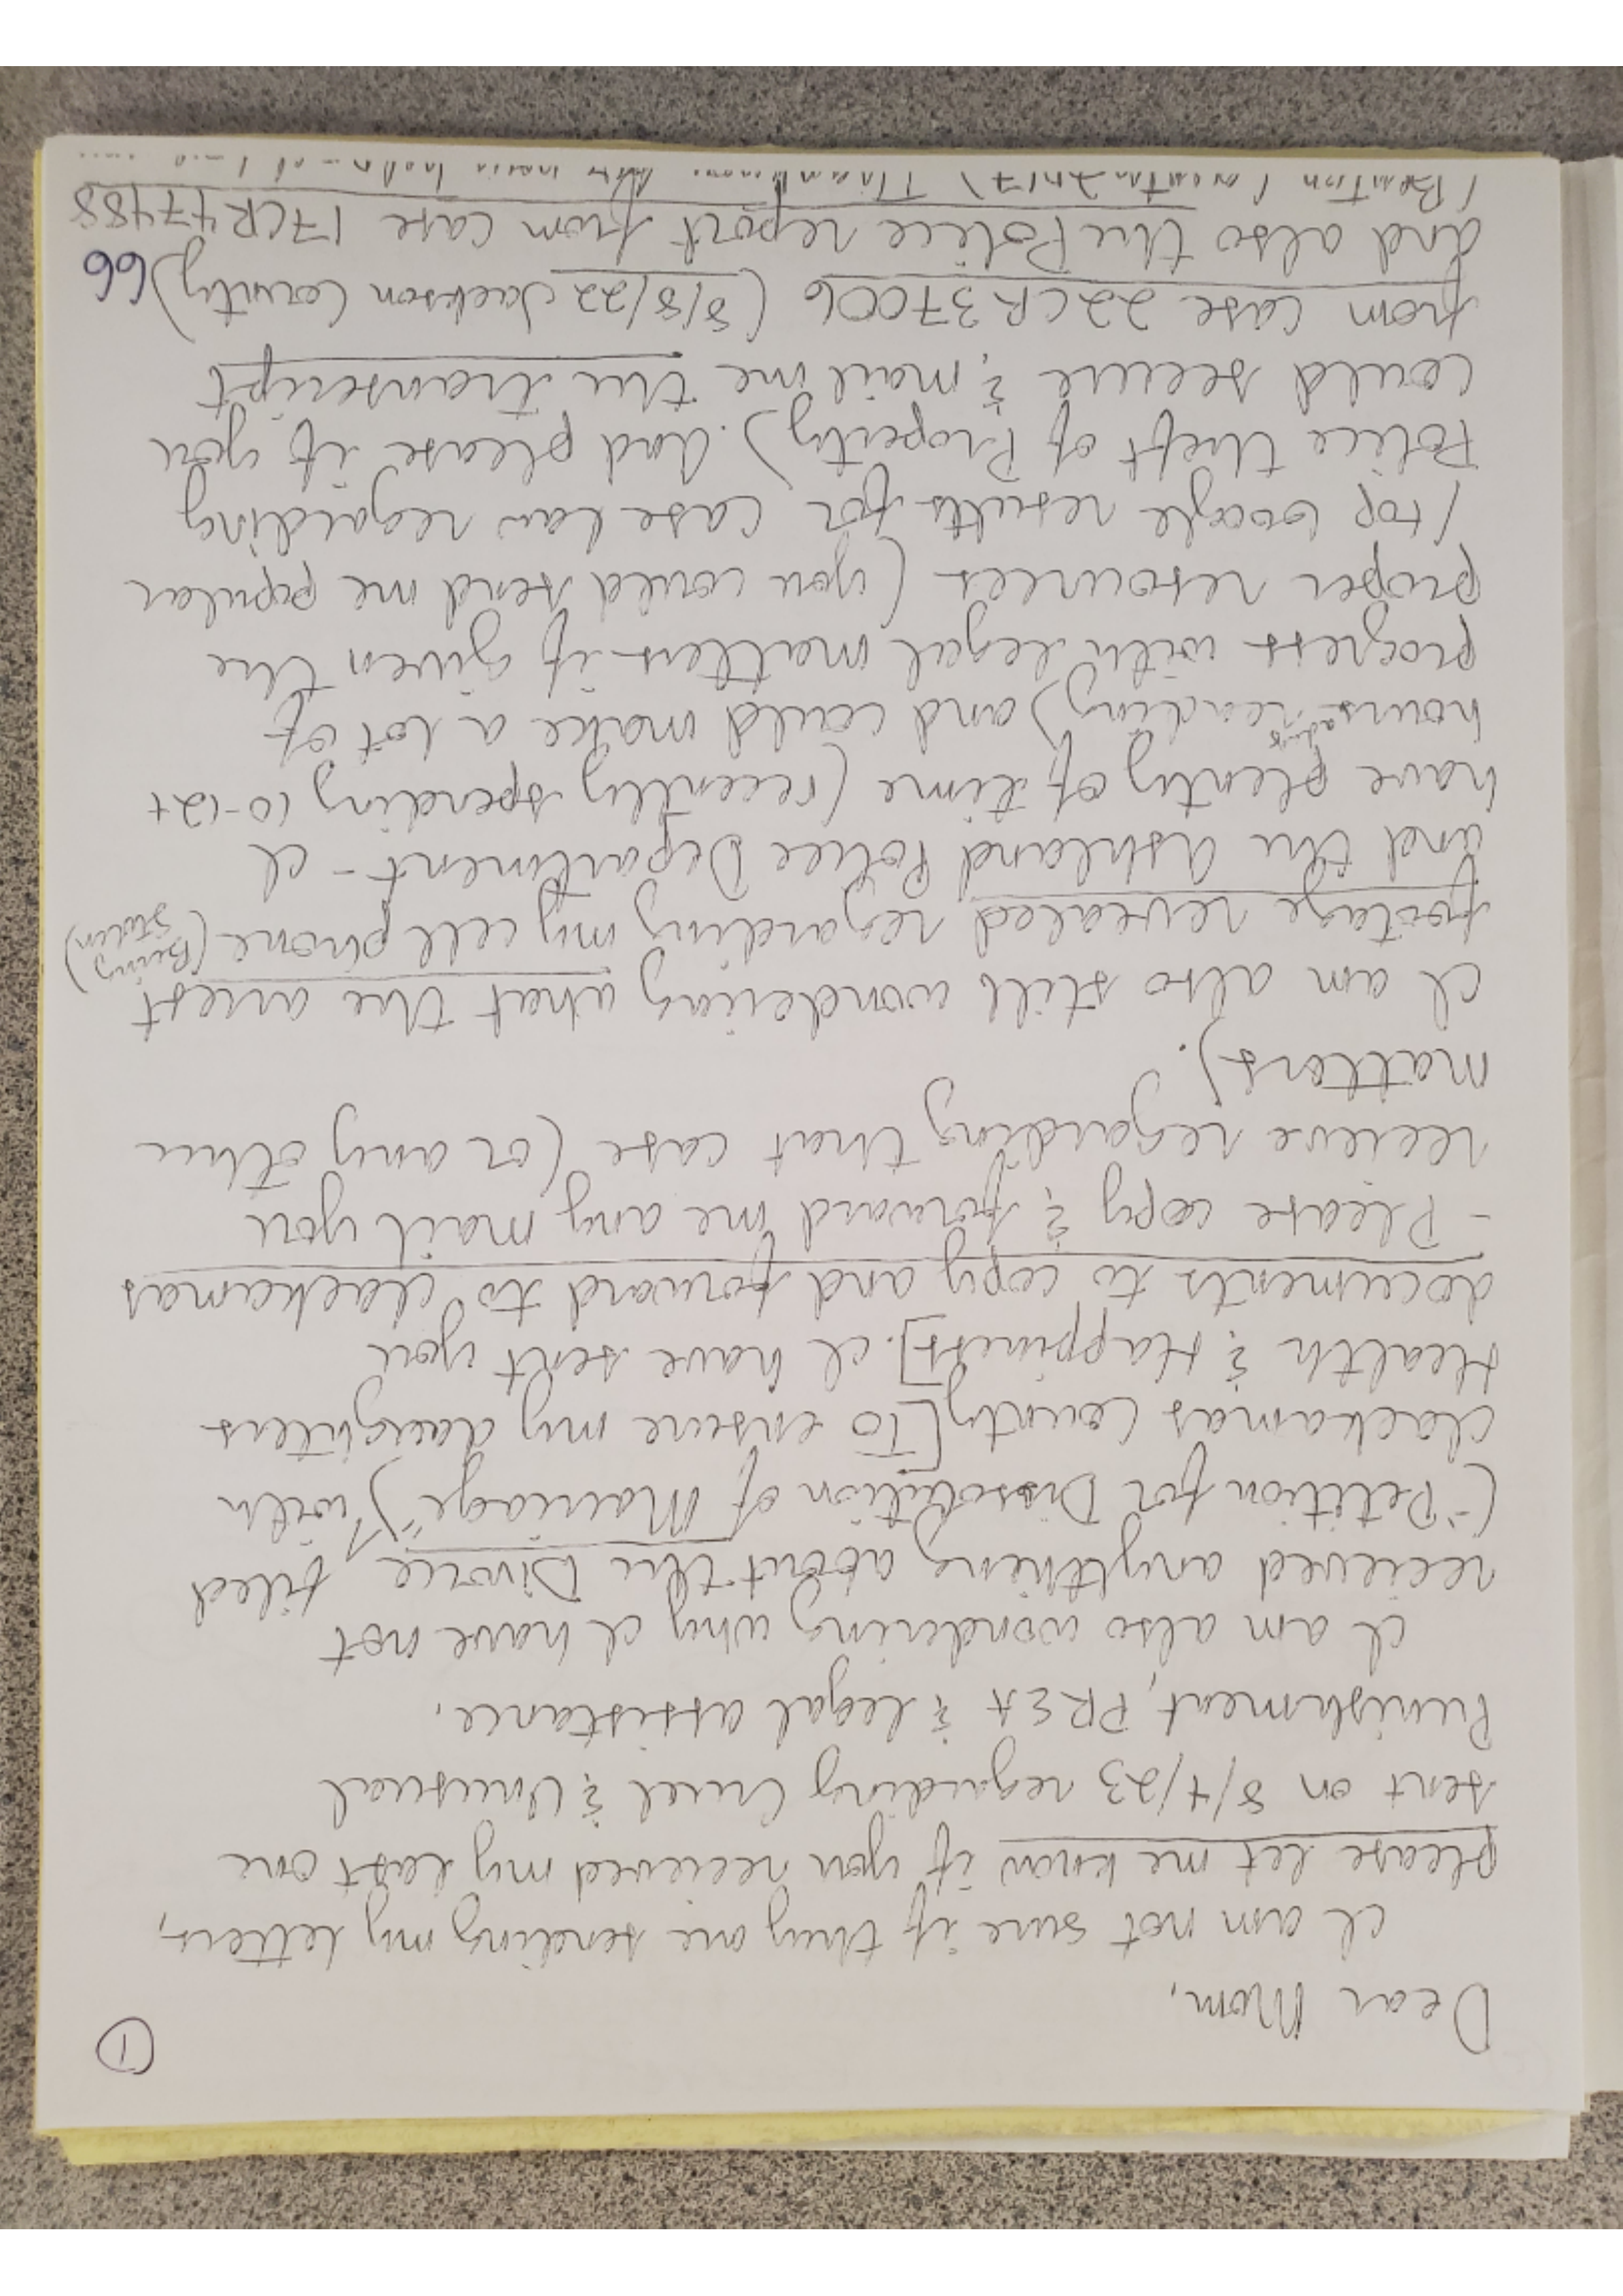 ①
Dear Mom,
I am not sure if they are sending my letters,
please let me know if you recieved my last one
sent on 8/4/23 regarding Cruel & Unusual
Punishment, PREA & legal assistance.
I am also wondering why I have not
recieved anything about the Divorce filed
("Petition for Dissolution of Marriage") with
Clackamas County [To ensure my daughters
Health & Happiness]. I have sent you
documents to copy and forward to Clackamas
- Please copy & forward me any mail you
recieve regarding that case (or any other
matters).
I am also still wondering what the arrest
footage revealed regarding my cell phone (Being Stolen)
and the Ashland Police Department - I
have plenty of time (recently spending 10-12+
hours reading) and could make a lot of
progress with legal matters if given the
proper resources (you could send me popular
/top Google results for case law regarding
Police theft of Property). And please if you
could secure & mail me the transcript
from case 22CR37006 (8/8/22 Jackson County)
66
and also the Police report from case 17CR47488
(Benton County 2017)